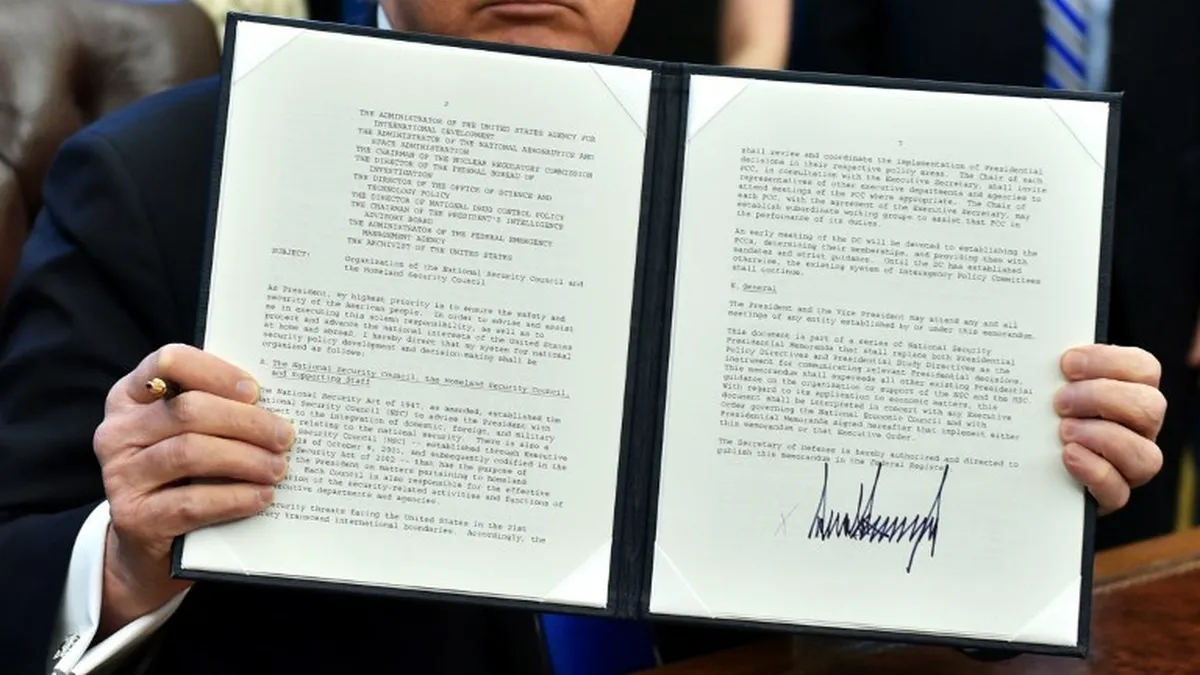 2
THE ADMINISTRATOR OF THE UNITED STATES AGENCY FOR
INTERNATIONAL DEVELOPMENT
THE ADMINISTRATOR OF THE NATIONAL AERONAUTICS AND
SPACE ADMINISTRATION
THE CHAIRMAN OF THE NUCLEAR REGULATORY COMMISSION
THE DIRECTOR OF THE FEDERAL BUREAU OF
INVESTIGATION
THE DIRECTOR OF THE OFFICE OF SCIENCE AND
TECHNOLOGY POLICY
THE DIRECTOR OF NATIONAL DRUG CONTROL POLICY
THE CHAIRMAN OF THE PRESIDENT'S INTELLIGENCE
ADVISORY BOARD
THE ADMINISTRATOR OF THE FEDERAL EMERGENCY
MANAGEMENT AGENCY
THE ARCHIVIST OF THE UNITED STATES
SUBJECT: Organization of the National Security Council and
the Homeland Security Council
As President, my highest priority is to ensure the safety and
security of the American people. In order to advise and assist
me in executing this solemn responsibility, as well as to
protect and advance the national interests of the United States
at home and abroad, I hereby direct that my system for national
security policy development and decision-making shall be
organized as follows:
A. The National Security Council, the Homeland Security Council,
and Supporting Staff
The National Security Act of 1947, as amended, established the
National Security Council (NSC) to advise the President with
respect to the integration of domestic, foreign, and military
relating to the national security. There is also a
Security Council (HSC) -- established through Executive
of October 8, 2001, and subsequently codified in the
Security Act of 2002 -- that has the purpose of
the President on matters pertaining to Homeland
Each Council is also responsible for the effective
of the security-related activities and functions of
executive departments and agencies.
Security threats facing the United States in the 21st
transcend international boundaries. Accordingly, the
shall review and coordinate the implementation of Presidential
decisions in their respective policy areas. The Chair of each
PCC, in consultation with the Executive Secretary, shall invite
representatives of other executive departments and agencies to
attend meetings of the PCC where appropriate. The Chair of
each PCC, with the agreement of the Executive Secretary, may
establish subordinate working groups to assist that PCC in
the performance of its duties.
An early meeting of the DC will be devoted to establishing the
PCCs, determining their memberships, and providing them with
mandates and strict guidance. Until the DC has established
otherwise, the existing system of Interagency Policy Committees
shall continue.
General
The President and the Vice President may attend any and all
meetings of any entity established by or under this memorandum.
This document is part of a series of National Security
Presidential Memoranda that shall replace both Presidential
Policy Directives and Presidential Study Directives as the
instrument for communicating relevant Presidential decisions.
This memorandum shall supersede all other existing Presidential
guidance on the organization or support of the NSC and the HSC.
With regard to its application to economic matters, this
document shall be interpreted in concert with any Executive
Order governing the National Economic Council and with
Presidential Memoranda signed hereafter that implement either
this memorandum or that Executive Order.
The Secretary of Defense is hereby authorized and directed to
publish this Memorandum in the Federal Register
X